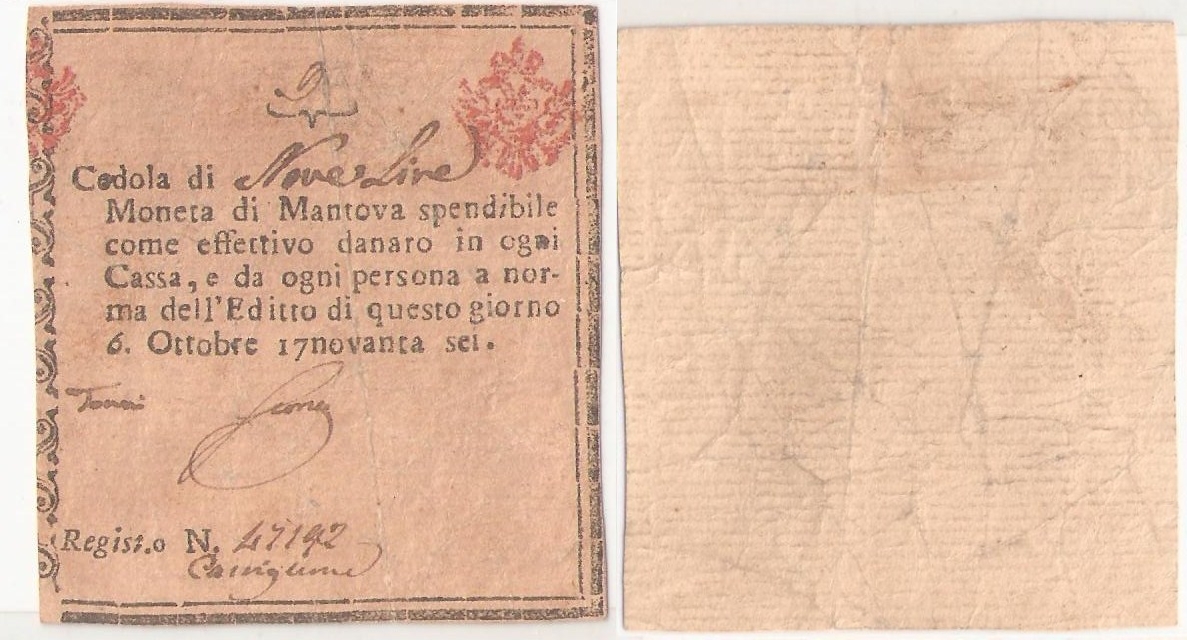 9
Cedola di Nove Lire
Moneta di Mantova spendibile
come effettivo danaro in ogni
Cassa, e da ogni persona a nor-
ma dell'Editto di questo giorno
6. Ottobre 17novanta sei.
Registro N. 47192